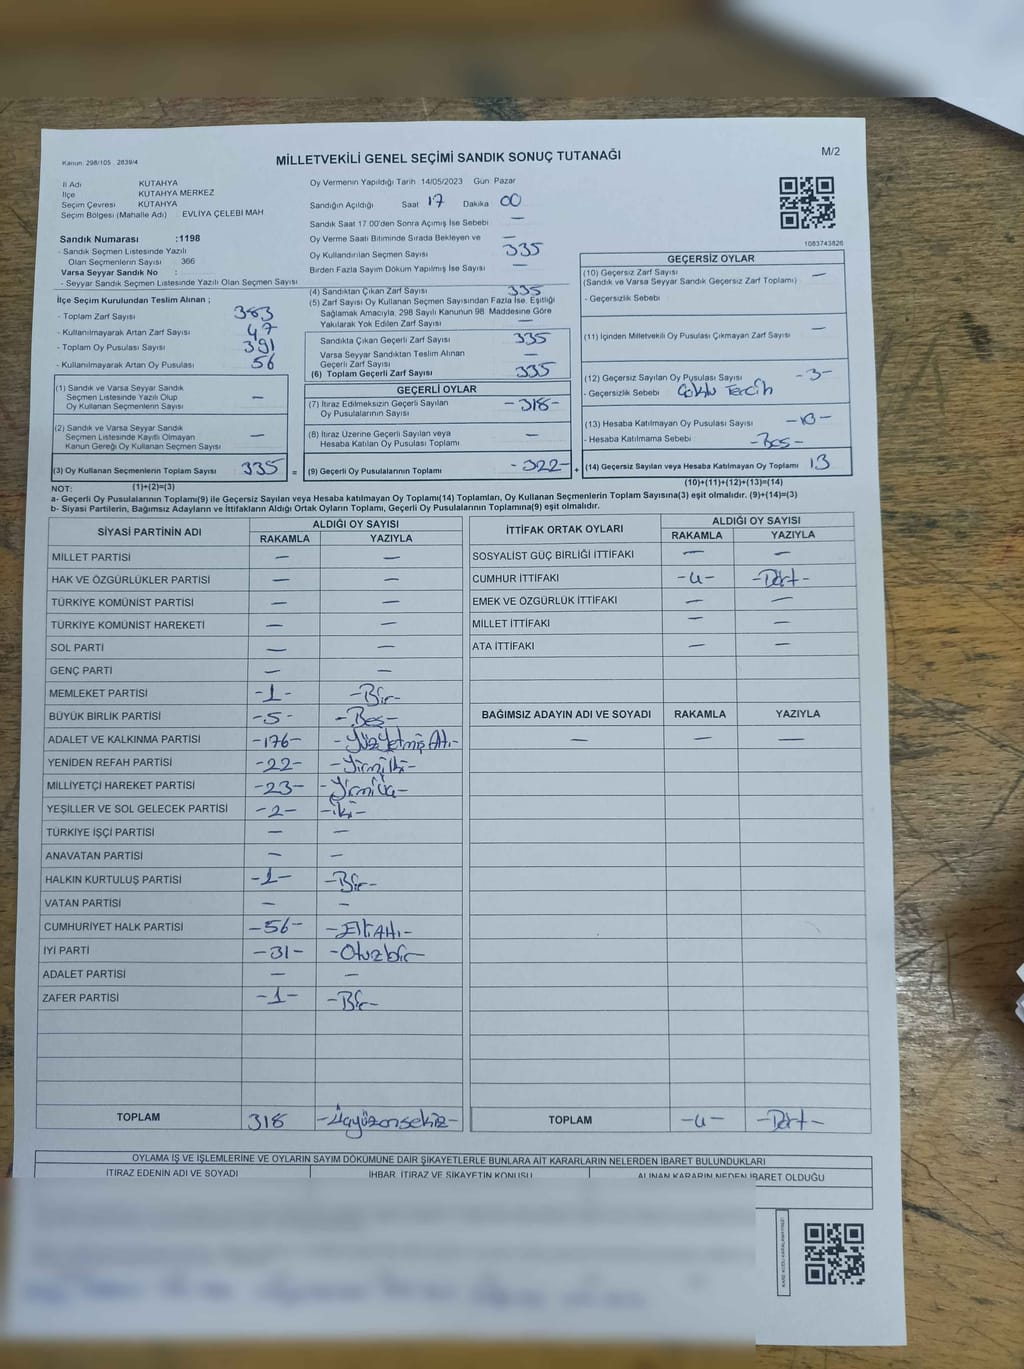 Kanun: 298/105 , 2839/4
MİLLETVEKİLİ GENEL SEÇİMİ SANDIK SONUÇ TUTANAĞI
M/2
İl Adı KÜTAHYA
İlçe KÜTAHYA MERKEZ
Seçim Çevresi KÜTAHYA
Seçim Bölgesi (Mahalle Adı) : EVLİYA ÇELEBİ MAH
Sandık Numarası :1198
- Sandık Seçmen Listesinde Yazılı
Olan Seçmenlerin Sayısı : 366
Varsa Seyyar Sandık No :
- Seyyar Sandık Seçmen Listesinde Yazılı Olan Seçmen Sayısı :
Oy Vermenin Yapıldığı Tarih 14/05/2023 Gün Pazar
Sandığın Açıldığı Saat 17 Dakika 00
Sandık Saat 17:00'den Sonra Açılmış İse Sebebi —
Oy Verme Saati Bitiminde Sırada Bekleyen ve —
Oy Kullandırılan Seçmen Sayısı 335
Birden Fazla Sayım Döküm Yapılmış İse Sayısı —
1083743826
İlçe Seçim Kurulundan Teslim Alınan ;
- Toplam Zarf Sayısı 383
- Kullanılmayarak Artan Zarf Sayısı 47
- Toplam Oy Pusulası Sayısı 391
- Kullanılmayarak Artan Oy Pusulası 56
(1) Sandık ve Varsa Seyyar Sandık
Seçmen Listesinde Yazılı Olup
Oy Kullanan Seçmenlerin Sayısı —
(2) Sandık ve Varsa Seyyar Sandık
Seçmen Listesinde Kayıtlı Olmayan
Kanun Gereği Oy Kullanan Seçmen Sayısı —
(3) Oy Kullanan Seçmenlerin Toplam Sayısı 335 =
(4) Sandıktan Çıkan Zarf Sayısı 335
(5) Zarf Sayısı Oy Kullanan Seçmen Sayısından Fazla İse, Eşitliği
Sağlamak Amacıyla, 298 Sayılı Kanunun 98. Maddesine Göre
Yakılarak Yok Edilen Zarf Sayısı —
Sandıkta Çıkan Geçerli Zarf Sayısı 335
Varsa Seyyar Sandıktan Teslim Alınan
Geçerli Zarf Sayısı —
(6) Toplam Geçerli Zarf Sayısı 335
GEÇERLİ OYLAR
(7) İtiraz Edilmeksizin Geçerli Sayılan
Oy Pusulalarının Sayısı -318-
(8) İtiraz Üzerine Geçerli Sayılan veya
Hesaba Katılan Oy Pusulası Toplamı —
(9) Geçerli Oy Pusulalarının Toplamı -322- +
GEÇERSİZ OYLAR
(10) Geçersiz Zarf Sayısı —
(Sandık ve Varsa Seyyar Sandık Geçersiz Zarf Toplamı)
- Geçersizlik Sebebi
(11) İçinden Milletvekili Oy Pusulası Çıkmayan Zarf Sayısı —
(12) Geçersiz Sayılan Oy Pusulası Sayısı -3-
- Geçersizlik Sebebi Çoklu Tercih
(13) Hesaba Katılmayan Oy Pusulası Sayısı -10-
- Hesaba Katılmama Sebebi -Boş-
(14) Geçersiz Sayılan veya Hesaba Katılmayan Oy Toplamı 13
(1)+(2)=(3)
(10)+(11)+(12)+(13)=(14)
NOT:
a- Geçerli Oy Pusulalarının Toplamı(9) ile Geçersiz Sayılan veya Hesaba katılmayan Oy Toplamı(14) Toplamları, Oy Kullanan Seçmenlerin Toplam Sayısına(3) eşit olmalıdır. (9)+(14)=(3)
b- Siyasi Partilerin, Bağımsız Adayların ve İttifakların Aldığı Ortak Oyların Toplamı, Geçerli Oy Pusulalarının Toplamına(9) eşit olmalıdır.
SİYASİ PARTİNİN ADI ALDIĞI OY SAYISI
RAKAMLA YAZIYLA
MİLLET PARTİSİ — —
HAK VE ÖZGÜRLÜKLER PARTİSİ — —
TÜRKİYE KOMÜNİST PARTİSİ — —
TÜRKİYE KOMÜNİST HAREKETİ — —
SOL PARTİ — —
GENÇ PARTİ — —
MEMLEKET PARTİSİ -1- -Bir-
BÜYÜK BİRLİK PARTİSİ -5- -Beş-
ADALET VE KALKINMA PARTİSİ -176- -YüzYetmişAltı-
YENİDEN REFAH PARTİSİ -22- -Yirmiİki-
MİLLİYETÇİ HAREKET PARTİSİ -23- -Yirmiüç-
YEŞİLLER VE SOL GELECEK PARTİSİ -2- -iki-
TÜRKİYE İŞÇİ PARTİSİ — —
ANAVATAN PARTİSİ — —
HALKIN KURTULUŞ PARTİSİ -1- -Bir-
VATAN PARTİSİ — —
CUMHURİYET HALK PARTİSİ -56- -ElliAltı-
İYİ PARTİ -31- -Otuzbir-
ADALET PARTİSİ — —
ZAFER PARTİSİ -1- -Bir-
TOPLAM 318 -Üçyüzonsekiz-
İTTİFAK ORTAK OYLARI ALDIĞI OY SAYISI
RAKAMLA YAZIYLA
SOSYALİST GÜÇ BİRLİĞİ İTTİFAKI — —
CUMHUR İTTİFAKI -4- -Dört-
EMEK VE ÖZGÜRLÜK İTTİFAKI — —
MİLLET İTTİFAKI — —
ATA İTTİFAKI — —
BAĞIMSIZ ADAYIN ADI VE SOYADI RAKAMLA YAZIYLA
— — —
TOPLAM -4- -Dört-
OYLAMA İŞ VE İŞLEMLERİNE VE OYLARIN SAYIM DÖKÜMÜNE DAİR ŞİKAYETLERLE BUNLARA AİT KARARLARIN NELERDEN İBARET BULUNDUKLARI
İTİRAZ EDENİN ADI VE SOYADI İHBAR, İTİRAZ VE ŞİKAYETİN KONUSU ALINAN KARARIN NEDEN İBARET OLDUĞU